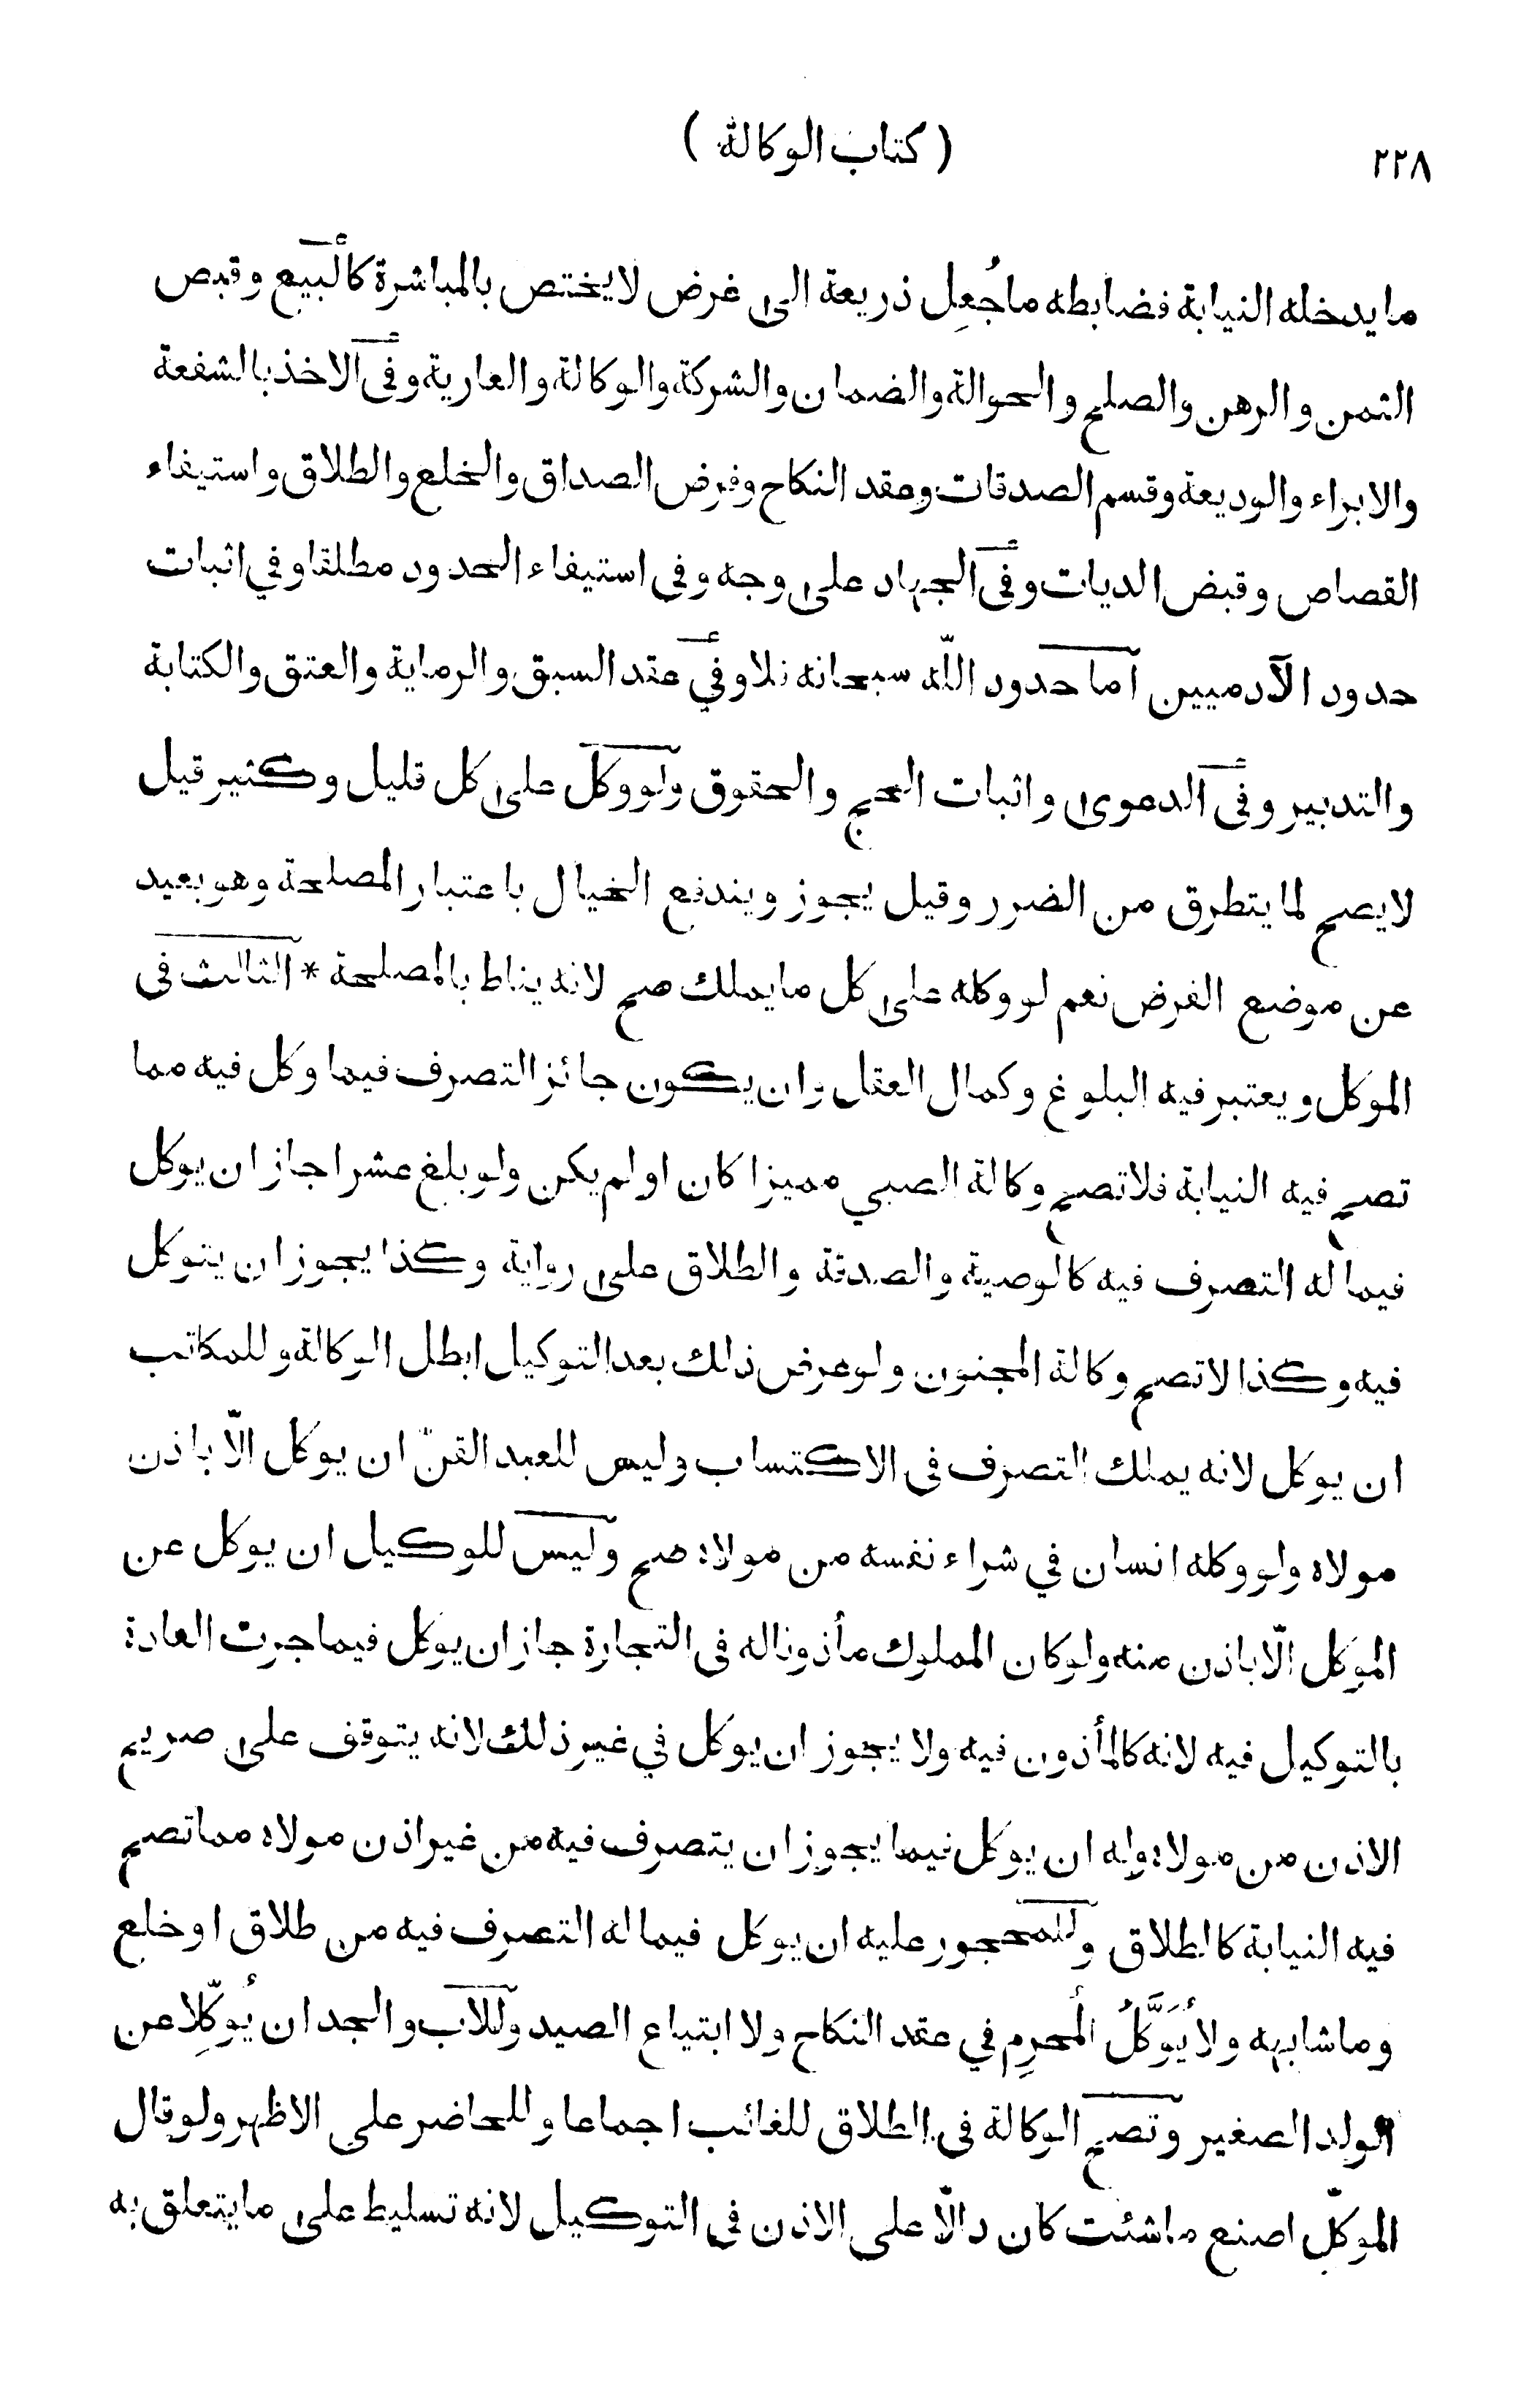 ٢٢٨
( كتاب الوكالة )
ما يدخله النيابة فضابطه ما جُعِل ذريعة الى غرض لا يختص بالمباشرة كالبيع وقبض
الثمن والرهن والصلح والحوالة والضمان والشركة والوكالة والعارية وفى الاخذ بالشفعة
والابراء والوديعة وقسم الصدقات وعقد النكاح وفرض الصداق والخلع والطلاق واستيفاء
القصاص وقبض الديات وفى الجهاد على وجه وفى استيفاء الحدود مطلقا وفي اثبات
حدود الآدميين اما حدود اللّه سبحانه فلا وفي عقد السبق والرماية والعتق والكتابة
والتدبير وفى الدعوى واثبات الحجج والحقوق ولو وكل على كل قليل وكثير قيل
لا يصح لما يتطرق من الضرر وقيل يجوز ويندفع الخيال باعتبار المصلحة وهو بعيد
عن موضع الفرض نعم لو وكله على كل ما يملك صح لانه يناط بالمصلحة * الثالث فى
الموكل ويعتبر فيه البلوغ وكمال العقل وان يكون جائز التصرف فيما وكل فيه مما
تصح فيه النيابة فلا تصح وكالة الصبي مميزا كان او لم يكن ولو بلغ عشرا جاز ان يوكل
فيما له التصرف فيه كالوصية والصدقة والطلاق على رواية وكذا يجوز ان يتوكل
فيه وكذا لا تصح وكالة المجنون ولو عرض ذلك بعد التوكيل ابطل الوكالة وللمكاتب
ان يوكل لانه يملك التصرف فى الاكتساب وليس للعبد القنّ ان يوكل الاّ باذن
مولاه ولو وكله انسان في شراء نفسه من مولاه صح وليس للوكيل ان يوكل عن
الموكل الاّ باذن منه ولو كان المملوك مأذونا له فى التجارة جاز ان يوكل فيما جرت العادة
بالتوكيل فيه لانه كالمأذون فيه ولا يجوز ان يوكل في غير ذلك لانه يتوقف على صريح
الاذن من مولاه وله ان يوكل فيما يجوز ان يتصرف فيه من غير اذن مولاه مما تصح
فيه النيابة كالطلاق وللمحجور عليه ان يوكل فيما له التصرف فيه من طلاق او خلع
وما شابهه ولا يُوَكَّلُ المُحرِم في عقد النكاح ولا ابتياع الصيد وللاب والجد ان يُوكِّلا عن
الولد الصغير وتصح الوكالة فى الطلاق للغائب اجماعا وللحاضر على الاظهر ولو قال
الموكّل اصنع ما شئت كان دالاّ على الاذن فى التوكيل لانه تسليط على ما يتعلق به